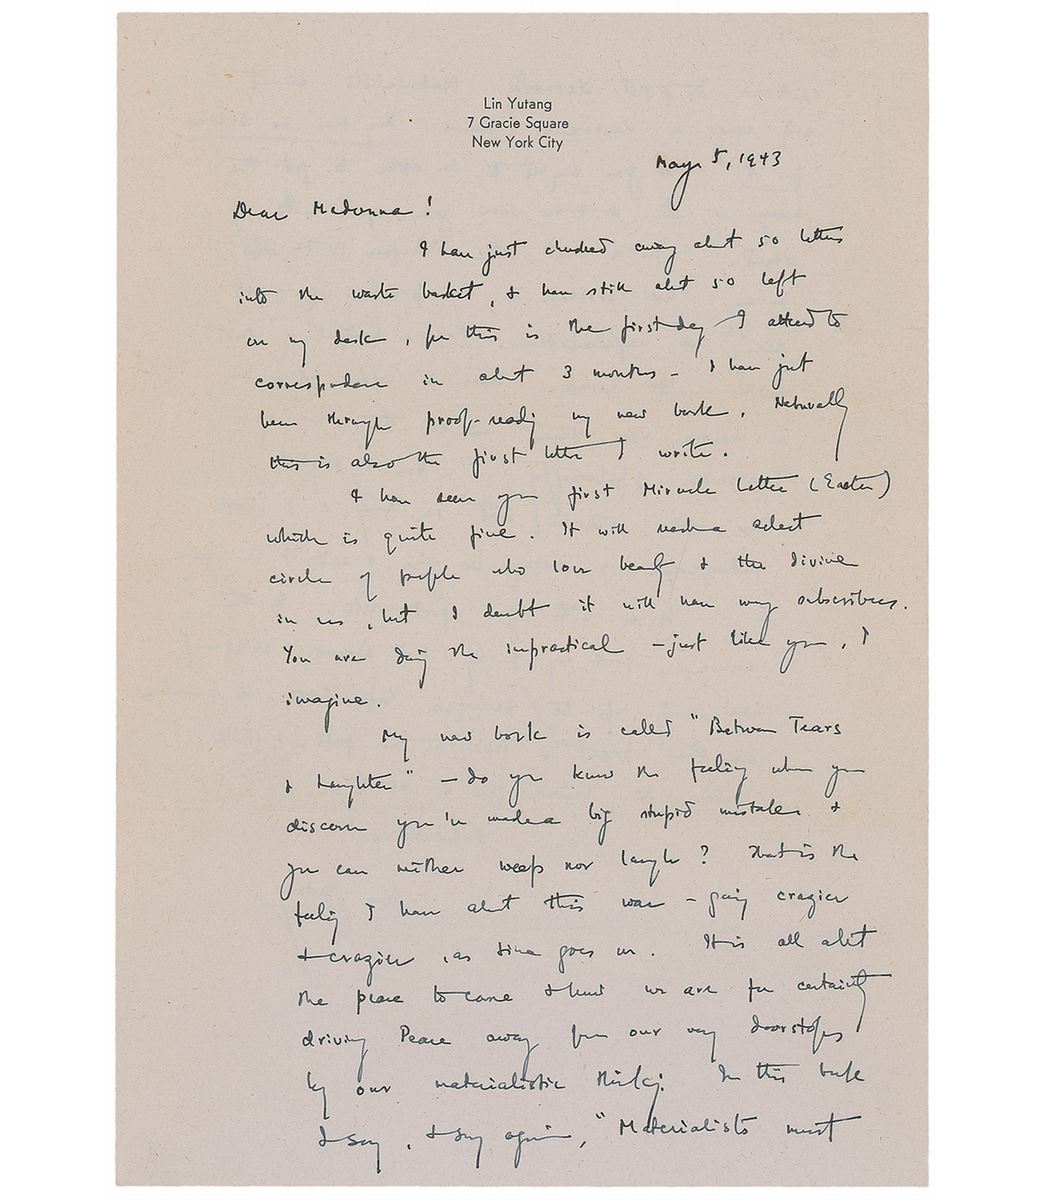 Lin Yutang
7 Gracie Square
New York City
May 5, 1943
Dear Madonna!
I have just chucked away about 50 letters
into the waste basket, & have still about 50 left
on my desk, for this is the first day I attend to
correspondence in about 3 months - I have just
been through proof-reading my new book. Naturally
this is also the first letter I write.
I have seen your first Miracle Letter (Easter)
which is quite fine. It will reach a select
circle of people who love beauty & the divine
in us, but I doubt it will have many subscribers.
You are doing the impractical - just like you, I
imagine.
My new book is called "Between Tears
& Laughter" - do you know the feeling when you
discover you've made a big stupid mistake &
you can neither weep nor laugh? That is the
feeling I have about this war - going crazier
& crazier, as time goes on. It is all about
the peace to come & how we are for certainty
driving Peace away from our very doorsteps
by our materialistic thinking. In this book
I say, & say again, "Materialists must